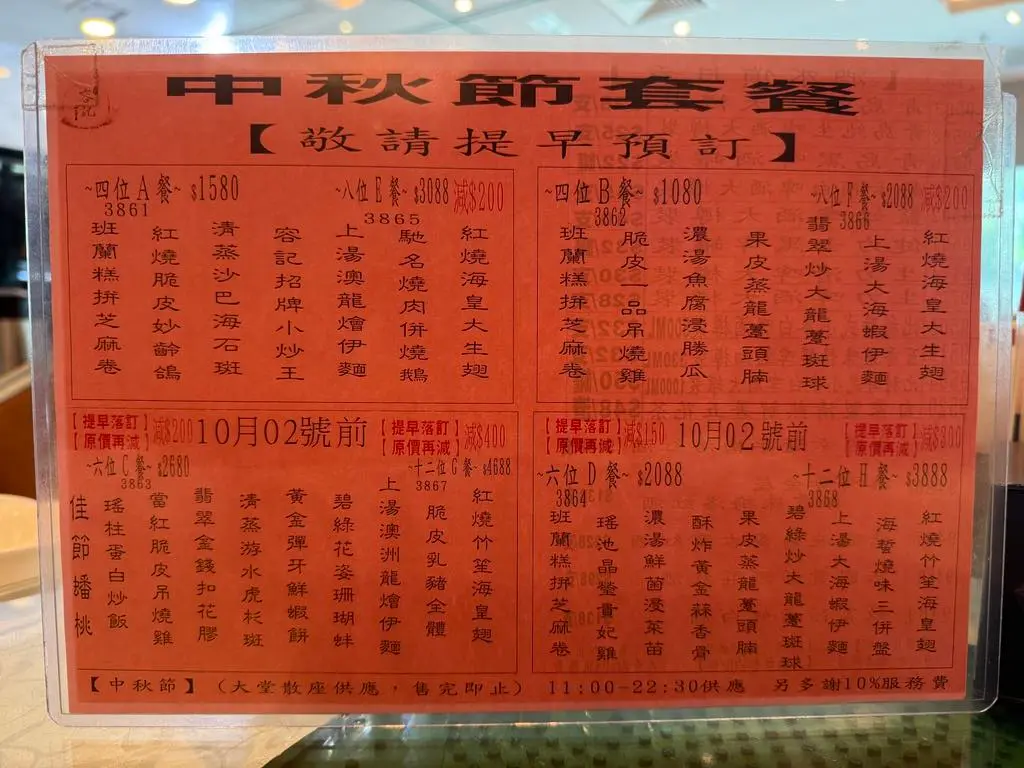 中秋節套餐
【敬請提早預訂】
~四位A餐~ $1580
3861
~八位E餐~ $3088 减$200
3865
紅燒海皇大生翅
馳名燒肉併燒鵝
上湯澳龍燴伊麵
容記招牌小炒王
清蒸沙巴海石斑
紅燒脆皮妙齡鴿
班蘭糕拼芝麻卷
~四位B餐~ $1080
3862
~八位F餐~ $2088 减$200
3866
紅燒海皇大生翅
上湯大海蝦伊麵
翡翠炒大龍躉斑球
果皮蒸龍躉頭腩
濃湯魚腐浸勝瓜
脆皮一品吊燒雞
班蘭糕拼芝麻卷
【提早落訂】
【原價再減】
减$200
10月02號前
【提早落訂】
【原價再減】
减$400
~六位C餐~ $2680
3863
~十二位G餐~ $4688
3867
紅燒竹笙海皇翅
脆皮乳豬全體
上湯澳洲龍燴伊麵
碧綠花姿珊瑚蚌
黃金彈牙鮮蝦餅
清蒸游水虎杉斑
翡翠金錢扣花膠
當紅脆皮吊燒雞
瑤柱蛋白炒飯
佳節蟠桃
【提早落訂】
【原價再減】
减$150
10月02號前
【提早落訂】
【原價再減】
减$300
~六位D餐~ $2088
3864
~十二位H餐~ $3888
3868
紅燒竹笙海皇翅
海蜇燒味三併盤
上湯大海蝦伊麵
碧綠炒大龍躉斑球
果皮蒸龍躉頭腩
酥炸黃金蒜香骨
濃湯鮮菌浸菜苗
瑤池晶瑩貴妃雞
班蘭糕拼芝麻卷
【中秋節】（大堂散座供應，售完即止） 11:00-22:30供應 另多謝10%服務費